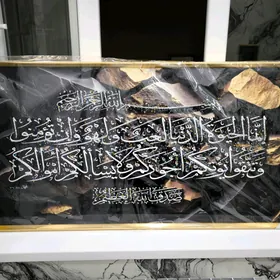 بسم الله الرحمن الرحيم
إنما الحيوة الدنيا لعب ولهو وإن تؤمنوا
وتتقوا يؤتكم أجوركم ولا يسألكم أموالكم
صدق الله العظيم